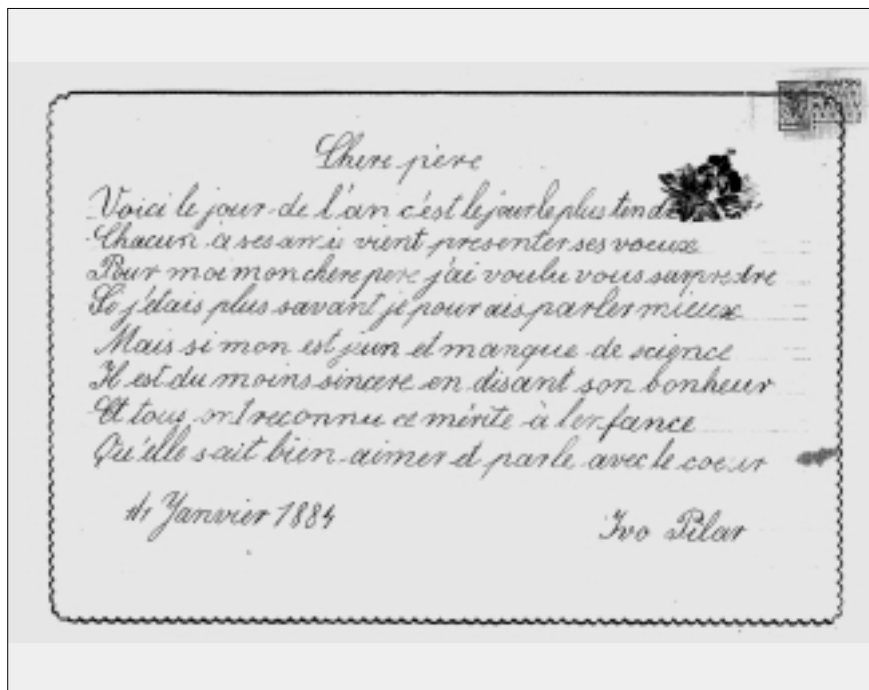 Chere père
Voici le jour de l'an c'est le jour le plus tendre
Chacun à ses ami vient presenter ses voeux
Pour moi mon chere pere j'ai voulu vous surprendre
Si j'étais plus savant je pourais parler mieux
Mais si mon est jeun et manque de science
Il est du moins sincere en disant son bonheur
Et tous ont reconnu ce mérite à l'enfance
Qu'elle sait bien aimer et parle avec le coeur
Janvier 1884
Ivo Pilar